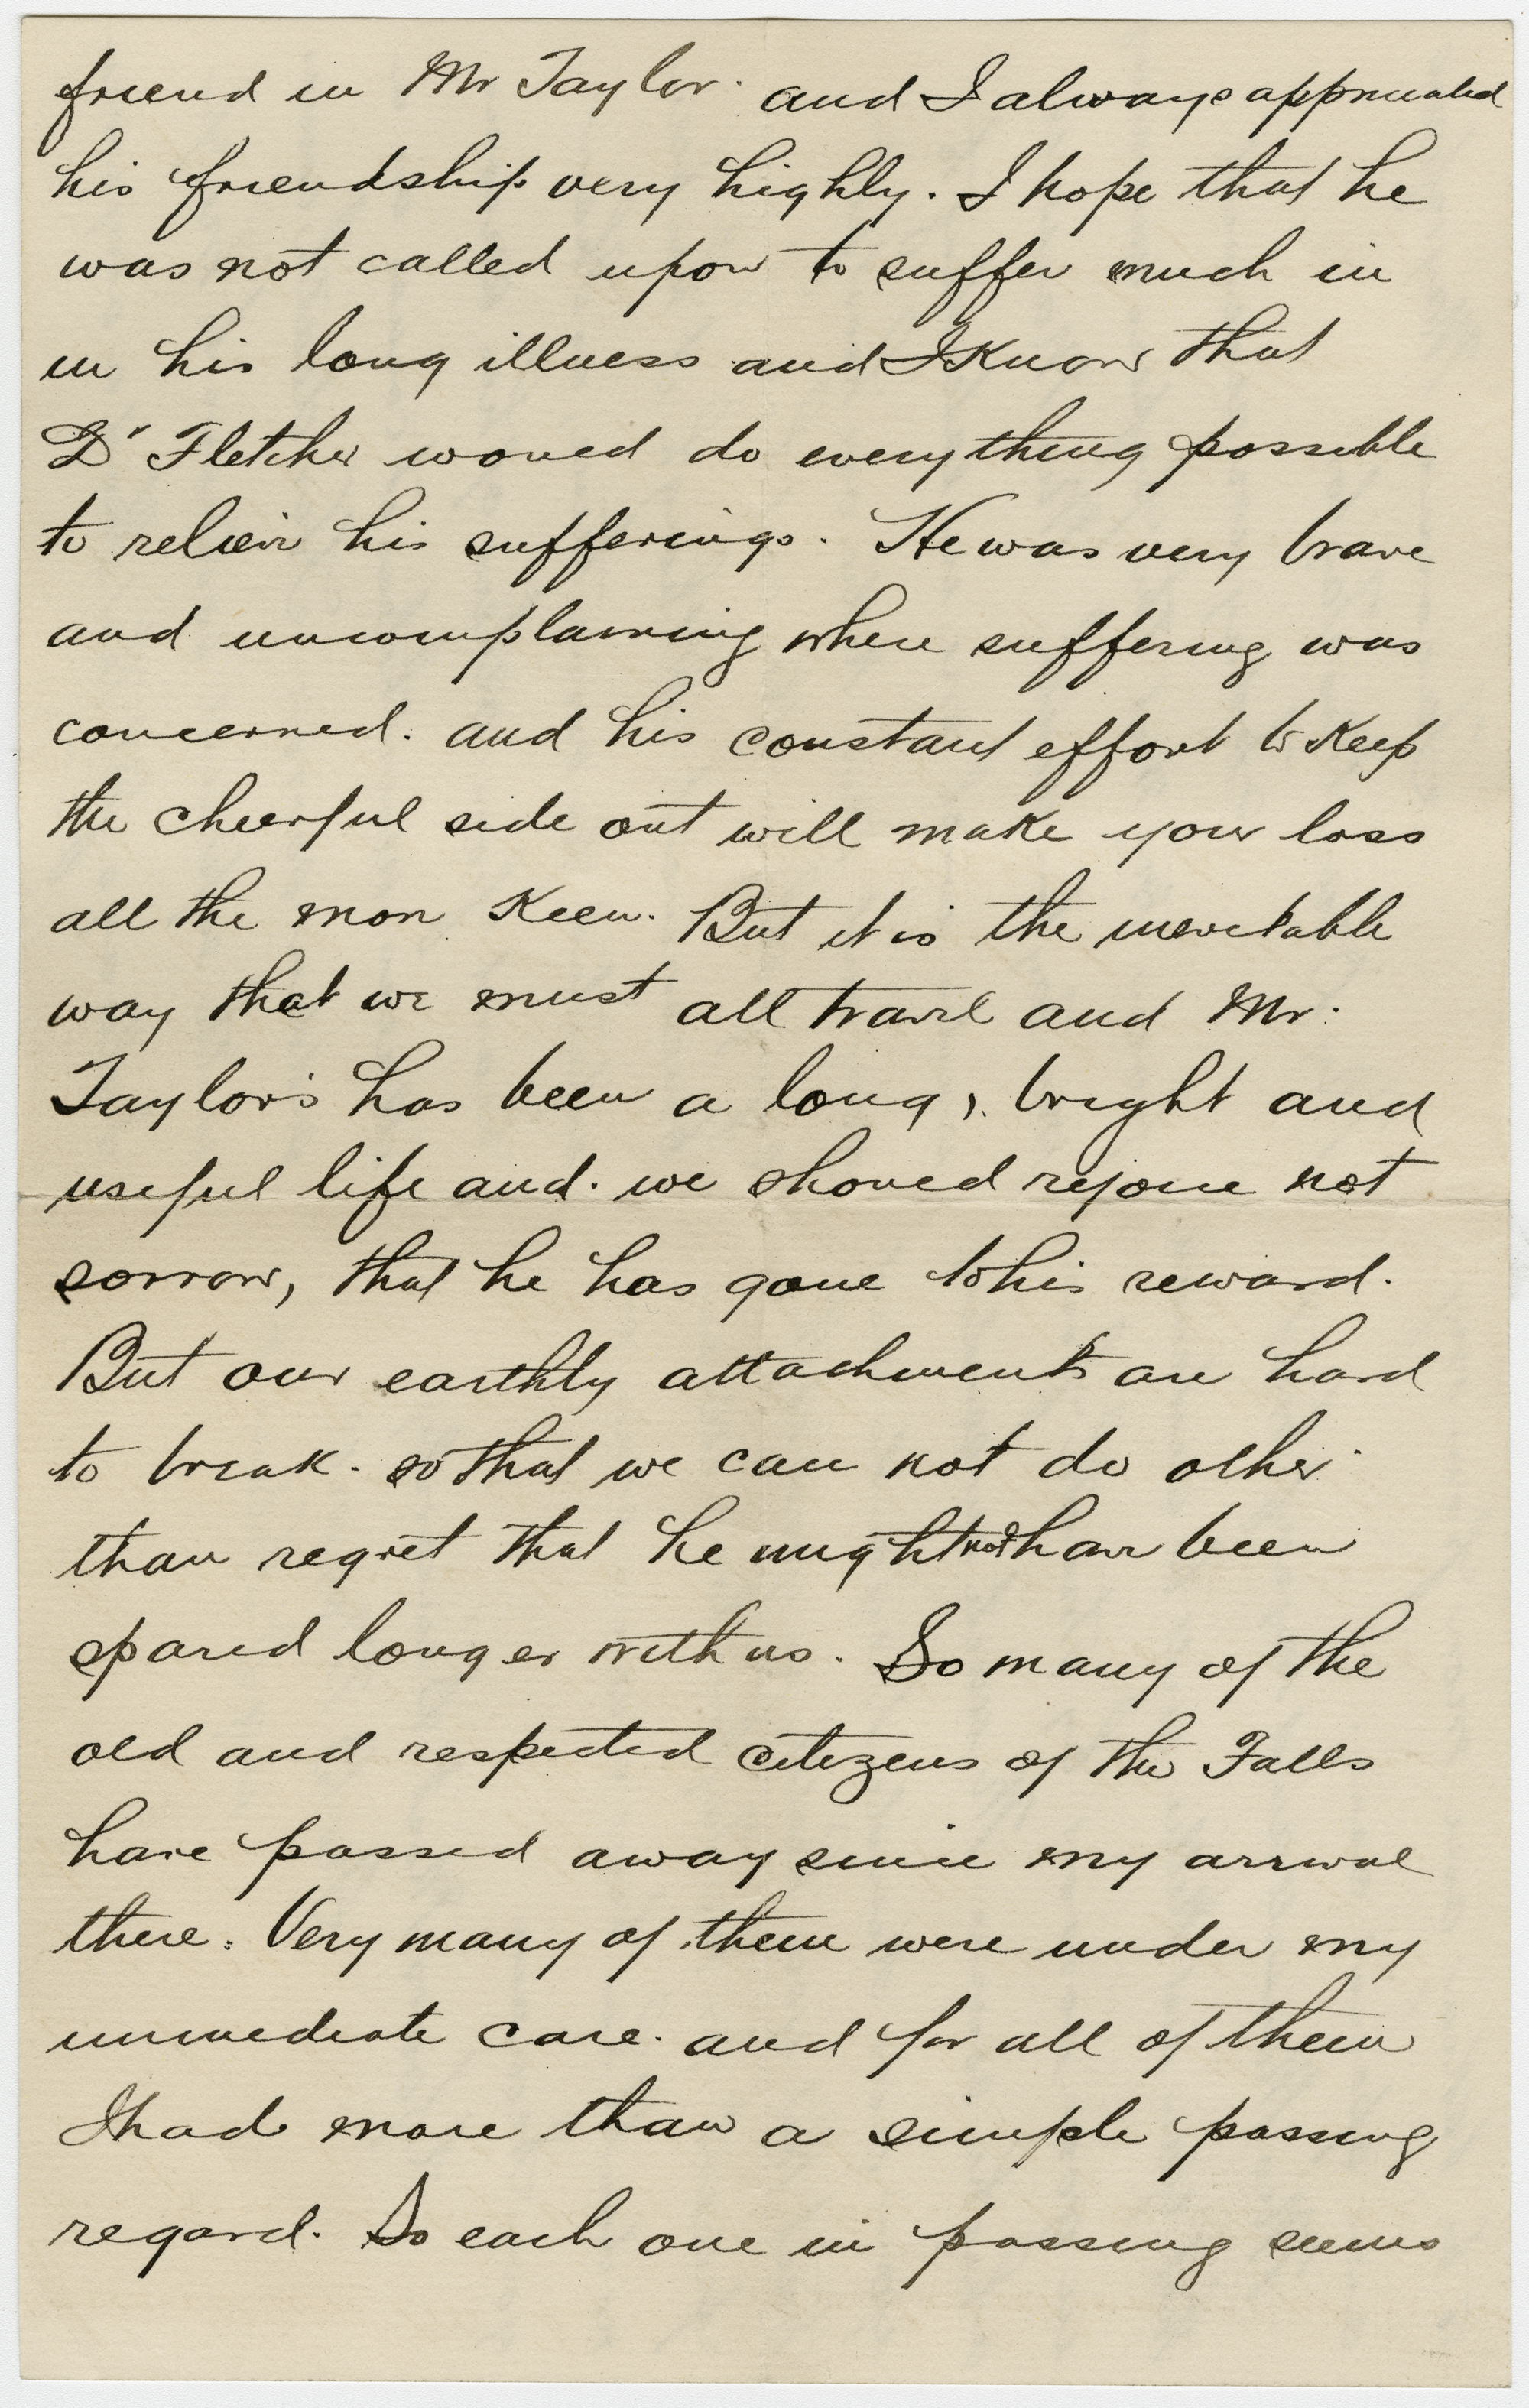 friend in Mr Taylor. and I always appreciated
his friendship very highly. I hope that he
was not called upon to suffer much in
in his long illness and I know that
Dr Fletcher would do everything possible
to relieve his sufferings. He was very brave
and uncomplaining where suffering was
concerned. and his constant effort to keep
the cheerful side out will make your loss
all the more keen. But it is the inevitable
way that we must all travel and Mr.
Taylor's has been a long, bright and
useful life and. we should rejoice not
sorrow, that he has gone to his reward.
But our earthly attachments are hard
to break. so that we can not do other
than regret that he might not have been
spared longer with us. So many of the
old and respected citizens of the Falls
have passed away since my arrival
there. Very many of them were under my
immediate care. and for all of them
I had more than a simple passing
regard. So each one in passing seems